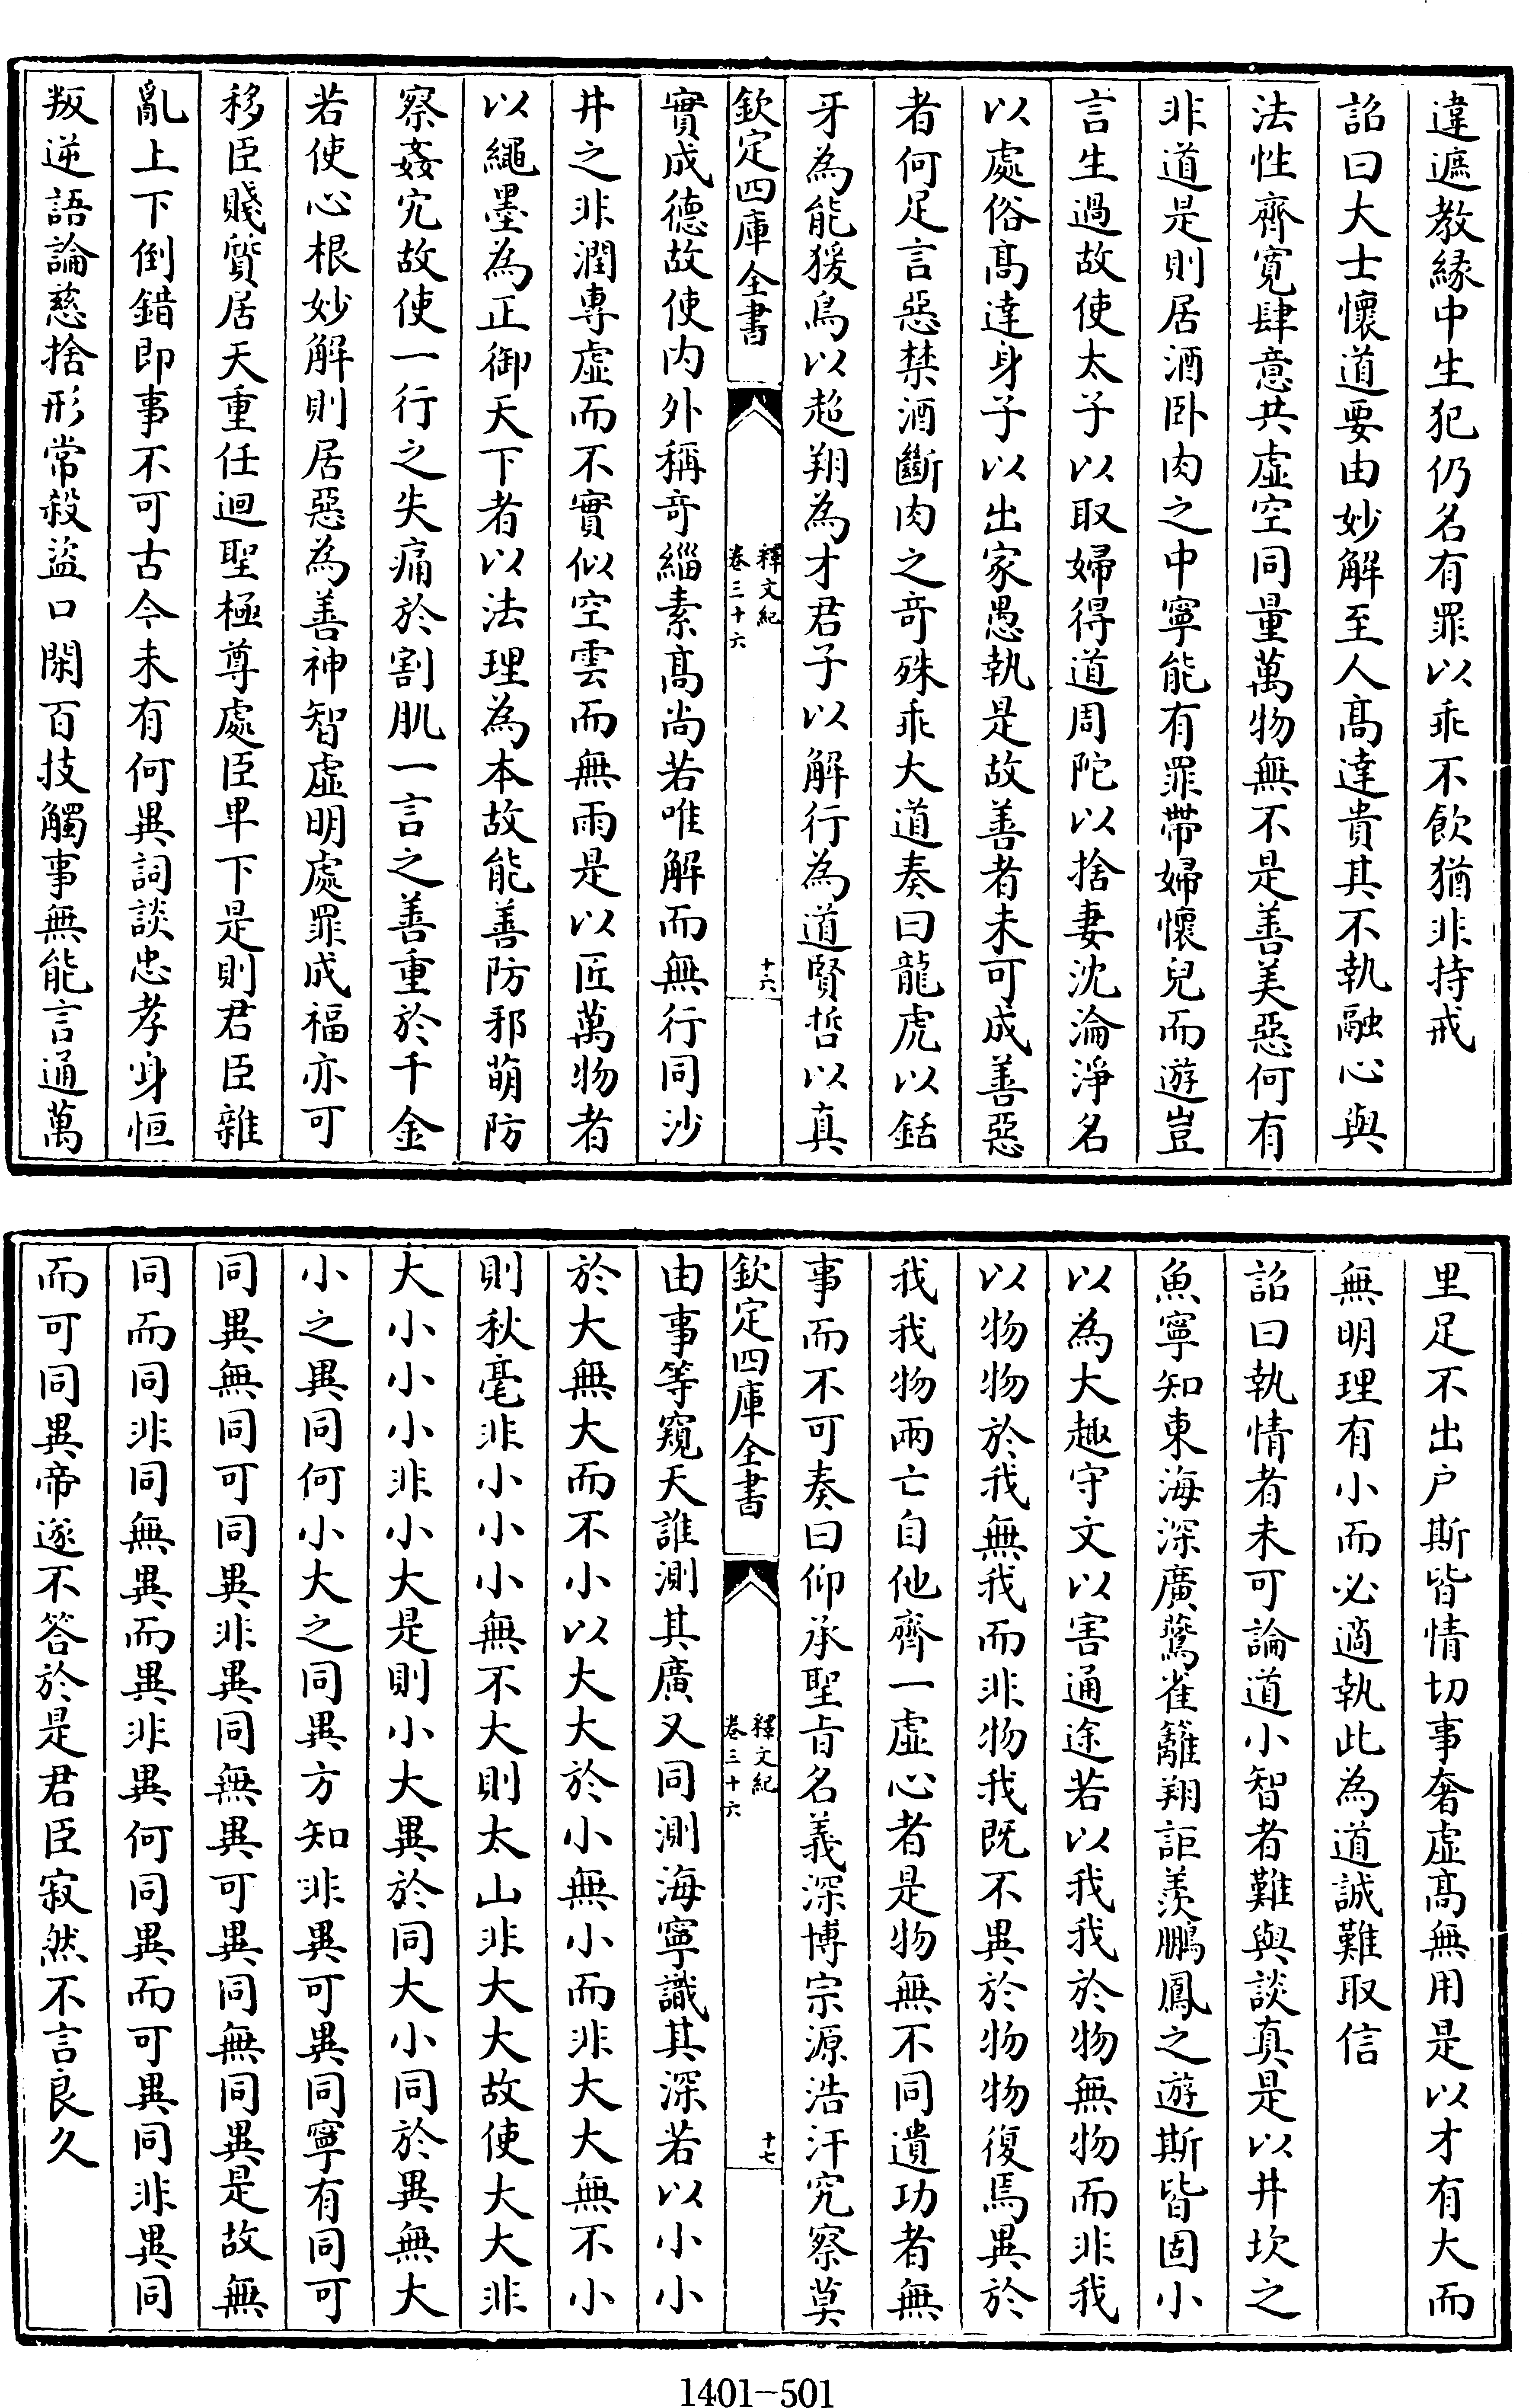 違遮教緣中生犯仍名有罪以乖不飲猶非持戒
詔曰大士懷道要由妙解至人髙達貴其不執融心與
法性齊寛肆意共虚空同量萬物無不是善美惡何有
非道是則居酒卧肉之中寧能有罪帶婦懷兒而遊豈
言生過故使太子以取婦得道周陀以捨妻沈淪淨名
以處俗髙達身子以出家愚執是故善者未可成善惡
者何足言惡禁酒斷肉之奇殊乖大道奏曰龍虎以銛
牙為能猨鳥以超翔為才君子以解行為道賢哲以真
欽定四庫全書
釋文紀
卷三十六
十六
實成德故使内外稱奇緇素髙尚若唯解而無行同沙
井之非潤專虚而不實似空雲而無雨是以匠萬物者
以繩墨為正御天下者以法理為本故能善防邪萌防
察姦宄故使一行之失痛於割肌一言之善重於千金
若使心根妙解則居惡為善神智虚明處罪成福亦可
移臣賤質居天重任迴聖極尊處臣卑下是則君臣雜
亂上下倒錯即事不可古今未有何異詞談忠孝身恒
叛逆語論慈捨形常殺盜口閑百技觸事無能言通萬
里足不出户斯皆情切事奢虚髙無用是以才有大而
無明理有小而必適執此為道誠難取信
詔曰執情者未可論道小智者難與談真是以井坎之
魚寧知東海深廣鷰雀籬翔詎羡鵬鳳之遊斯皆固小
以為大趣守文以害通途若以我我於物無物而非我
以物物於我無我而非物我既不異於物物復焉異於
我我物兩亡自他齊一虚心者是物無不同遺功者無
事而不可奏曰仰承聖旨名義深博宗源浩汗究察莫
欽定四庫全書
釋文紀
卷三十六
十七
由事等窺天誰測其廣又同測海寧識其深若以小小
於大無大而不小以大大於小無小而非大大無不小
則秋毫非小小小無不大則太山非大大故使大大非
大小小小非小大是則小大異於同大小同於異無大
小之異同何小大之同異方知非異可異同寧有同可
同異無同可同異非異同無異可異同無同異是故無
同而同非同無異而異非異何同異而可異同非異同
而可同異帝遂不答於是君臣寂然不言良久
1401-501